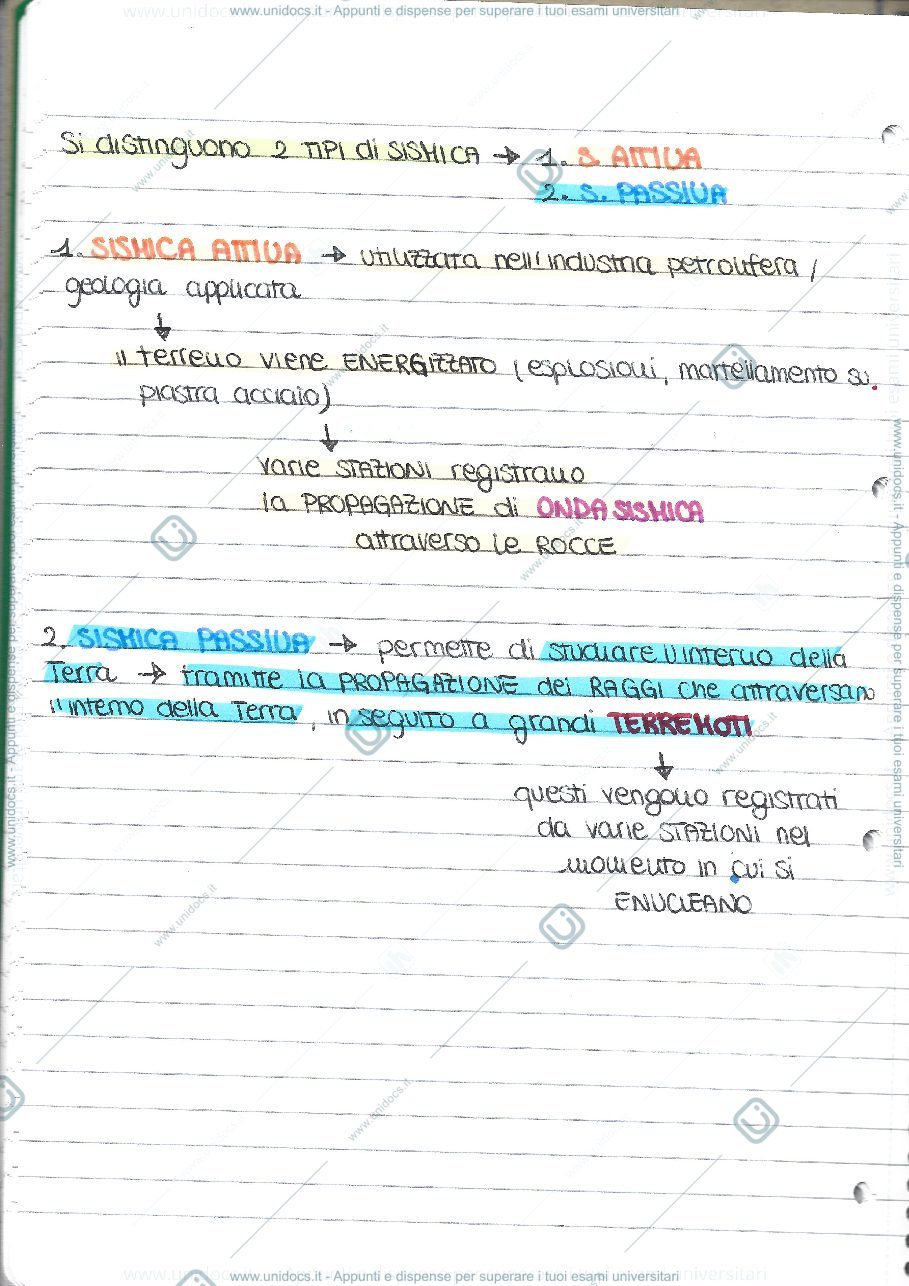 www.unidocs.it - Appunti e dispense per superare i tuoi esami universitari
Si distinguono 2 TIPI di SISMICA → 1. S. ATTIVA
2. S. PASSIVA
1. SISMICA ATTIVA → utilizzata nell'industria petrolifera /
geologia applicata
↓
il terreno viene ENERGIZZATO (esplosioni, martellamento su
piastra acciaio)
↓
varie STAZIONI registrano
la PROPAGAZIONE di ONDA SISMICA
attraverso le ROCCE
2. SISMICA PASSIVA → permette di studiare l'interno della
Terra → tramite la PROPAGAZIONE dei RAGGI che attraversano
l'interno della Terra, in seguito a grandi TERREMOTI
↓
questi vengono registrati
da varie STAZIONI nel
momento in cui si
ENUCLEANO
www.unidocs.it - Appunti e dispense per superare i tuoi esami universitari